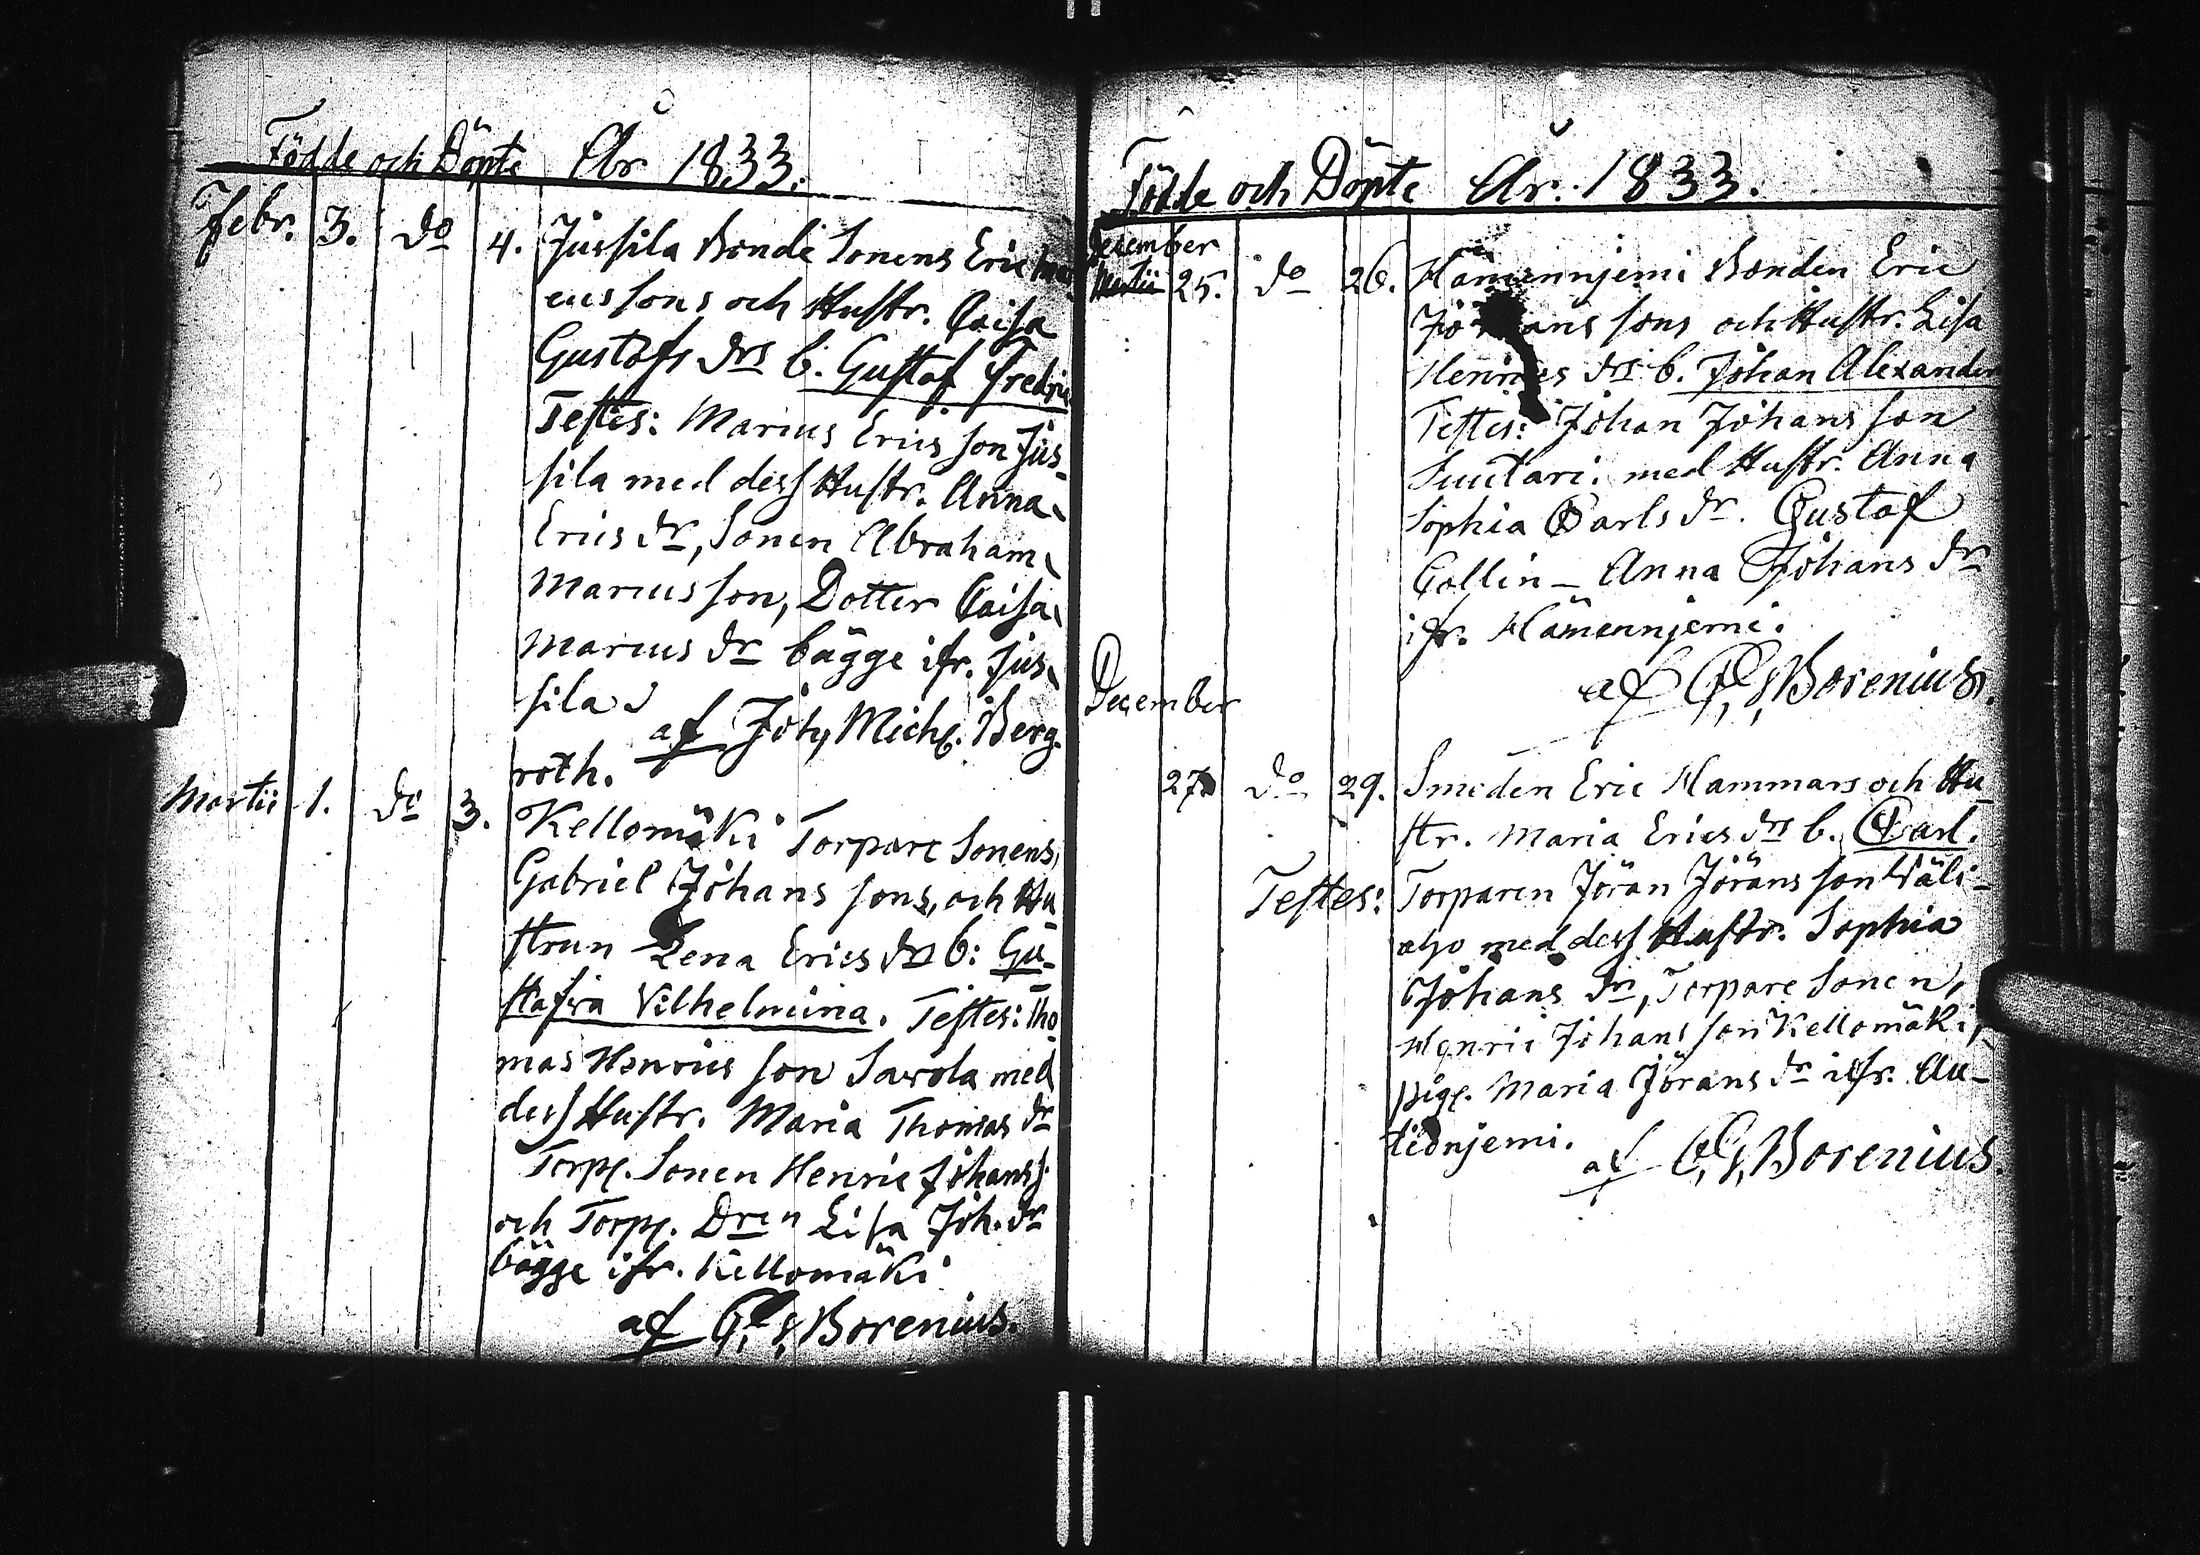 Födde och Döpte År 1833.
Febr. 3. do 4. Jussila Bonde Sonens Eric Mar
cussons och Hustr. Caisa
Gustafs drs b. Gustaf Fredric
Testes: Marcus Erics son Jus-
sila med dess Hustr. Anna
Erics dr, Sonen Abraham
Marcus son, Dotter Caisa
Marcus dr bägge ifr. Jus
sila
af Joh, Mich. Berg-
roth.
Martii 1. do 3. Kellomäki Torpare Sonens,
Gabriel Johans sons, och Hu
strun Lena Erics drs b: Gu-
stafva Vilhelmina. Testes: Tho
mas Henrics son Sawola med
dess Hustr. Maria Thomas dr
Torp. Sonen Henric Johans s.
och Torp. Dren Lisa Joh. dr
bägge ifr. Kellomäki
af G. Borenius.
Födde och Döpte År. 1833.
December
Martii 25. do 26. Hämennjemi Bonden Eric
Jörans sons och Hustr. Lisa
Henrics drs b. Johan Alexander
Testes: Johan Johans son
Suutari. med Hustr. Anna
Sophia Carls dr. Gustaf
Collin - Anna Johans dr
ifr. Hämennjemi.
af Borenius.
December
27 do 29. Smeden Eric Hammars och Hu
str. Maria Erics drs b. Carl.
Testes: Torparen Jöran Jörans son Wäli-
aho med dess Hustr. Sophia
Johans dr, Torpare Sonen,
Henric Johans son Kellomäki,
pig. Maria Jörans dr ifr. Au-
tionjemi.
af Borenius.